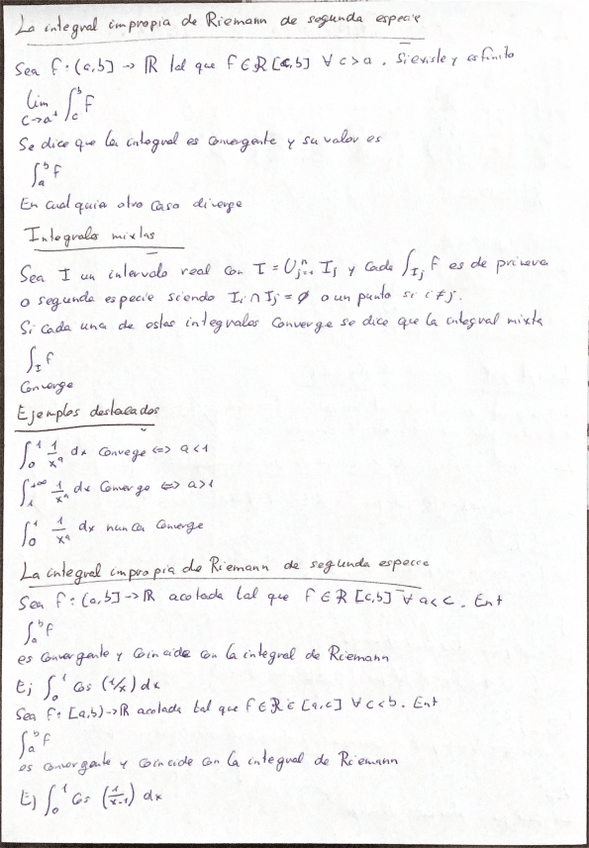 La integral impropia de Riemann de segunda especie
Sea f: (a,b] → ℝ tal que f ∈ ℛ [c,b] ∀ c>a. Si existe y es finito
lim_{c→a⁺} ∫_c^b f
Se dice que la integral es convergente y su valor es
∫_a^b f
En cualquier otro caso diverge
Integrales mixtas
Sea I un intervalo real con I = ∪_{j=1}^n I_j y cada ∫_{I_j} f es de primera
o segunda especie siendo I_i ∩ I_j = ∅ o un punto si i ≠ j.
Si cada una de estas integrales converge se dice que la integral mixta
∫_I f
Converge
Ejemplos destacados
∫_0^1 1/x^a dx Converge ⇔ a<1
∫_1^{+∞} 1/x^a dx Converge ⇔ a>1
∫_0^1 1/x^a dx nunca Converge
La integral impropia de Riemann de segunda especie
Sea f: (a,b] → ℝ acotada tal que f ∈ ℛ [c,b] ∀ a<c. Ent
∫_a^b f
es convergente y coincide con la integral de Riemann
Ej ∫_0^1 Cos (1/x) dx
Sea f: [a,b) → ℝ acotada tal que f ∈ ℛ [a,c] ∀ c<b. Ent
∫_a^b f
es convergente y coincide con la integral de Riemann
Ej ∫_0^1 Cos (1/(x-1)) dx